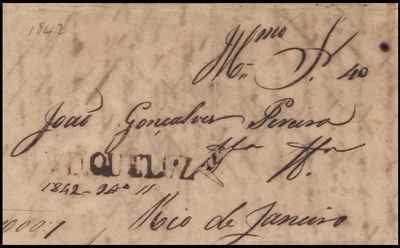 1842
Illmo Sr.
João Gonçalves Pereira
V. D QUELUZ
1842 - 24º 11
Rio de Janeiro